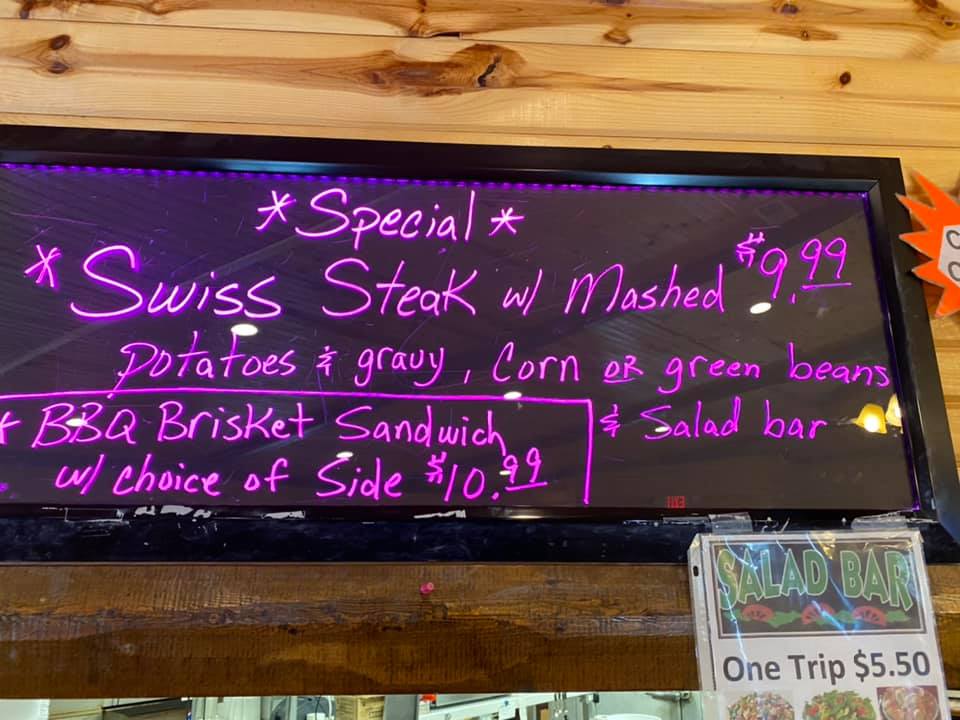 *Special*
*Swiss Steak w/ Mashed $9.99
potatoes & gravy, Corn OR green beans
& Salad bar
* BBQ Brisket Sandwich
w/ choice of Side $10.99
EXIT
SALAD BAR
One Trip $5.50